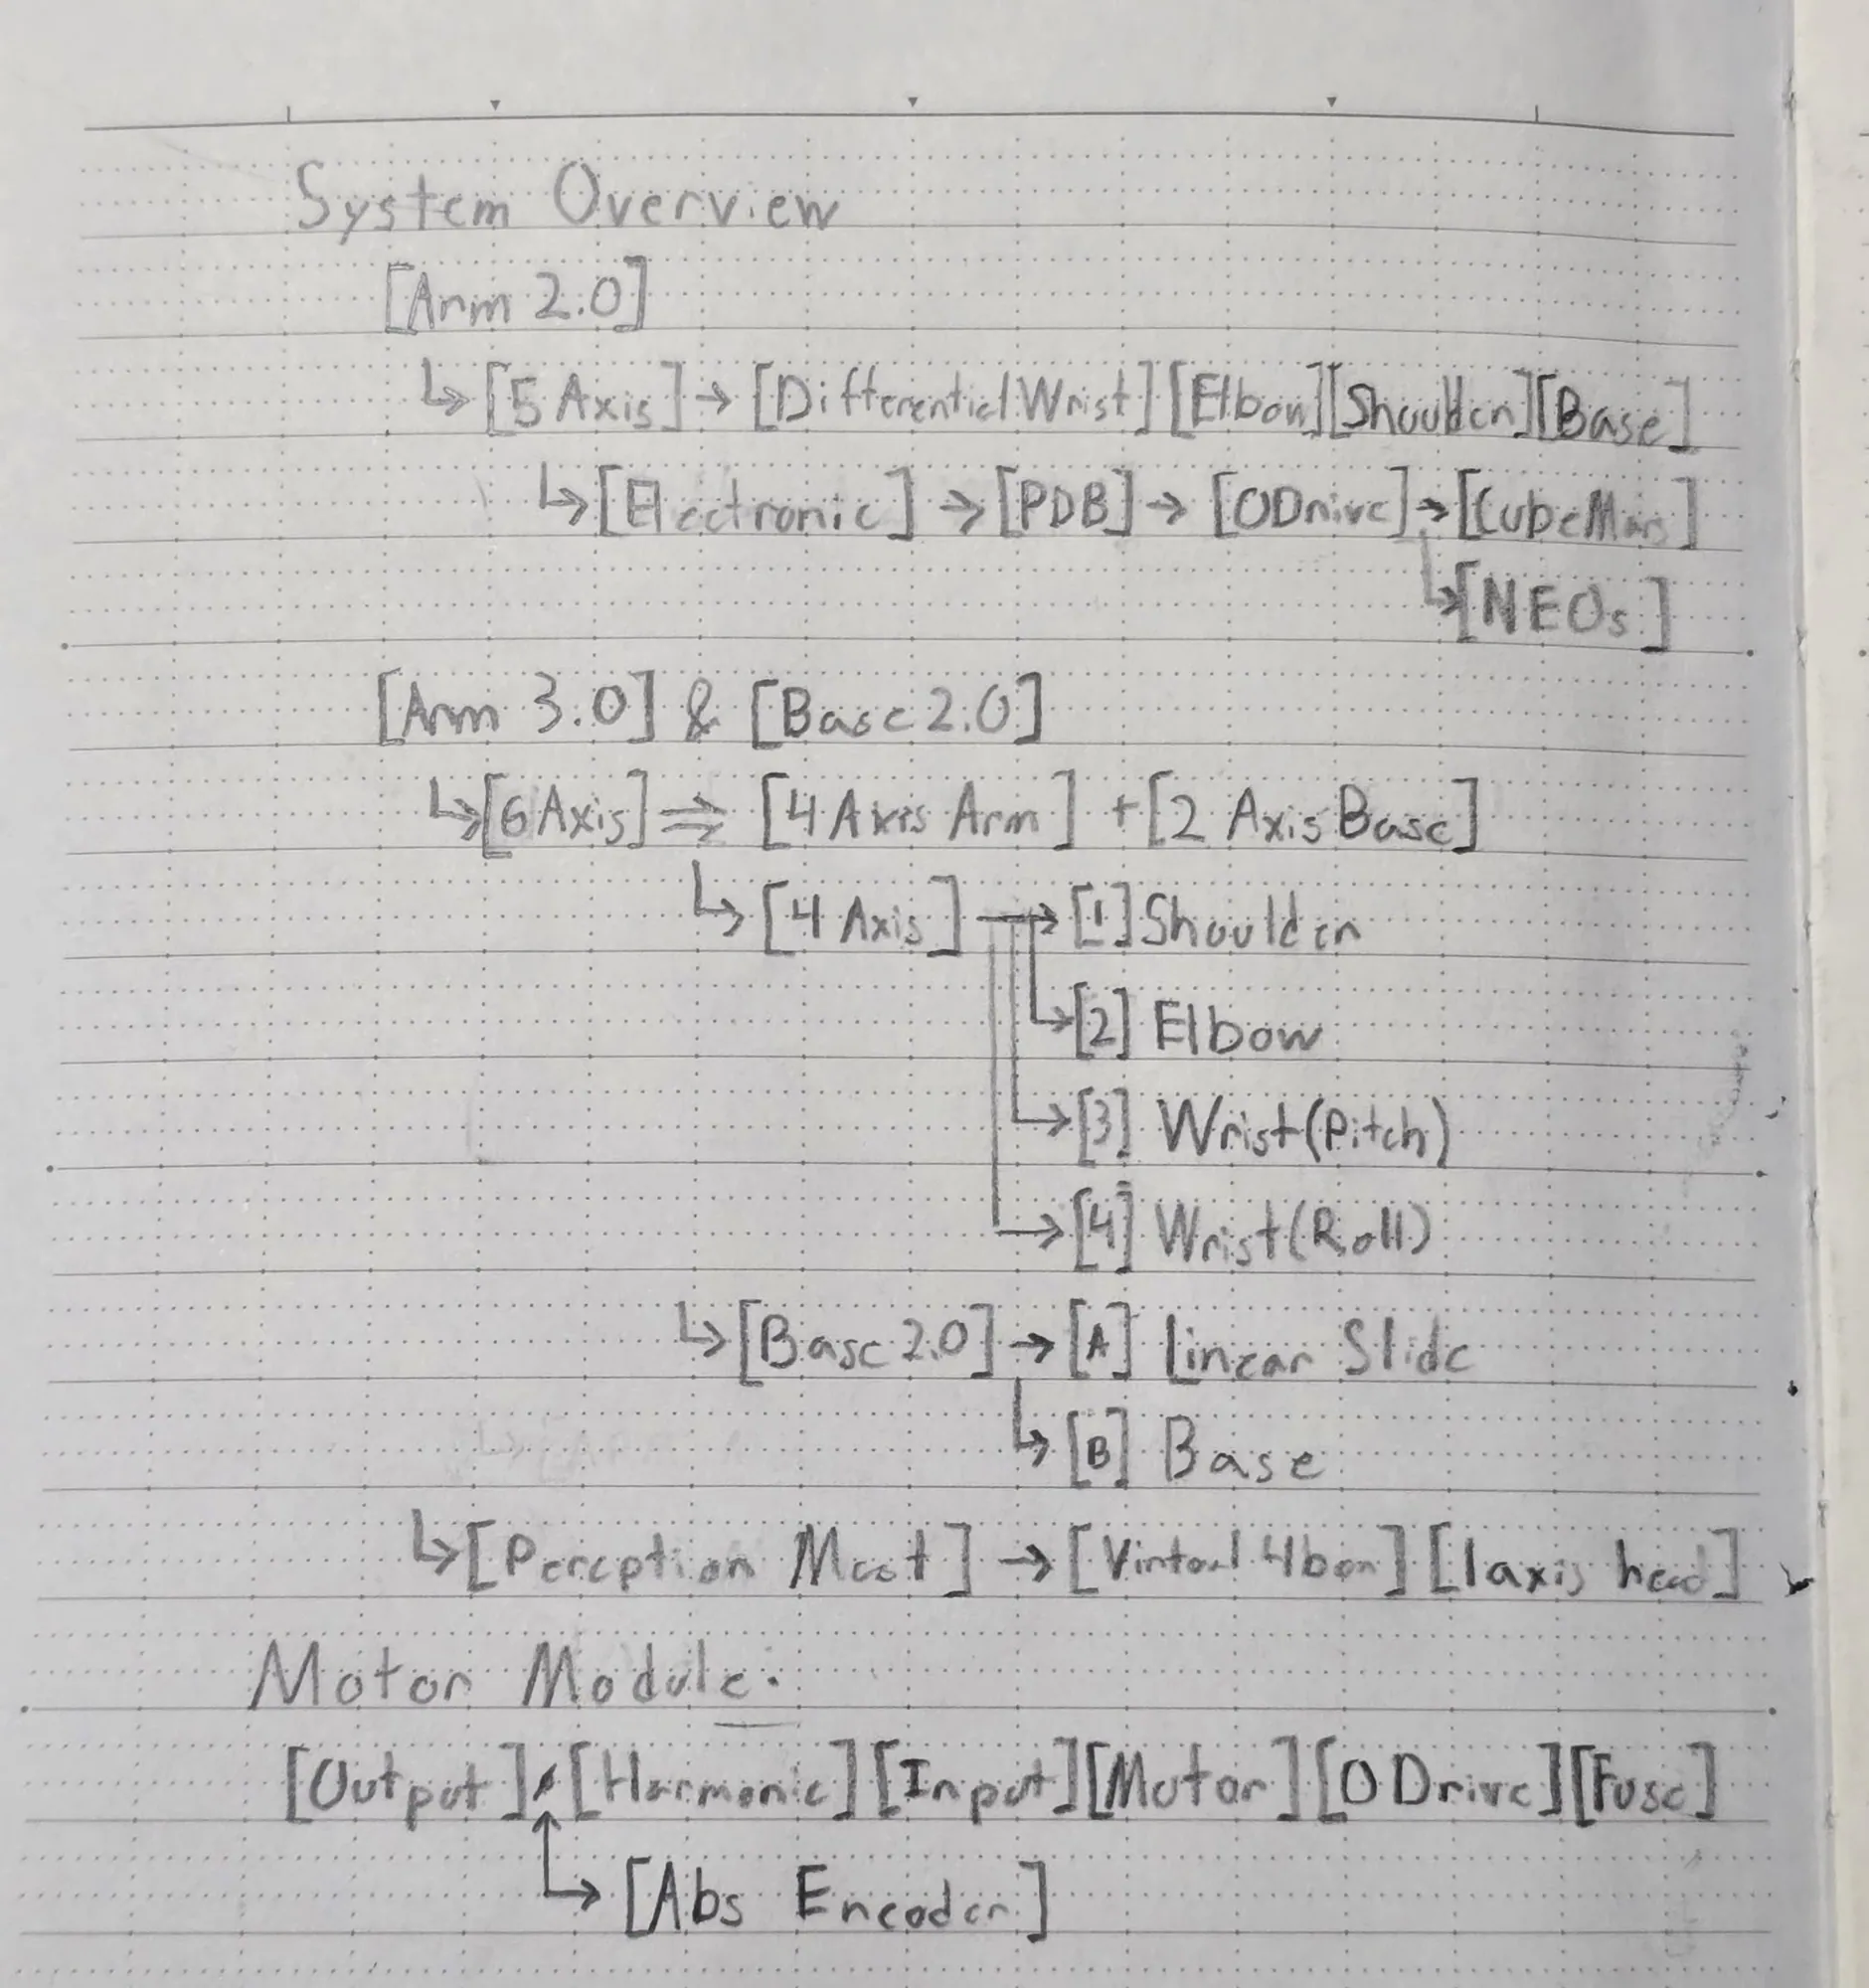 System Overview
[Arm 2.0]
↳ [5 Axis] → [Differential Wrist] [Elbow] [Shoulder] [Base]
↳ [Electronic] → [PDB] → [ODrive] → [CubeMars]
↳ [NEOs]
[Arm 3.0] & [Base 2.0]
↳ [6 Axis] ⇉ [4 Axis Arm] + [2 Axis Base]
↳ [4 Axis] → [1] Shoulder
↳ [2] Elbow
↳ [3] Wrist (Pitch)
↳ [4] Wrist (Roll)
↳ [Base 2.0] → [A] Linear Slide
↳ [B] Base
↳ [Perception Mast] → [Virtual 4bar] [1axis head]
Motor Module:
[Output] [Harmonic] [Input] [Motor] [ODrive] [Fuse]
↳ [Abs Encoder]